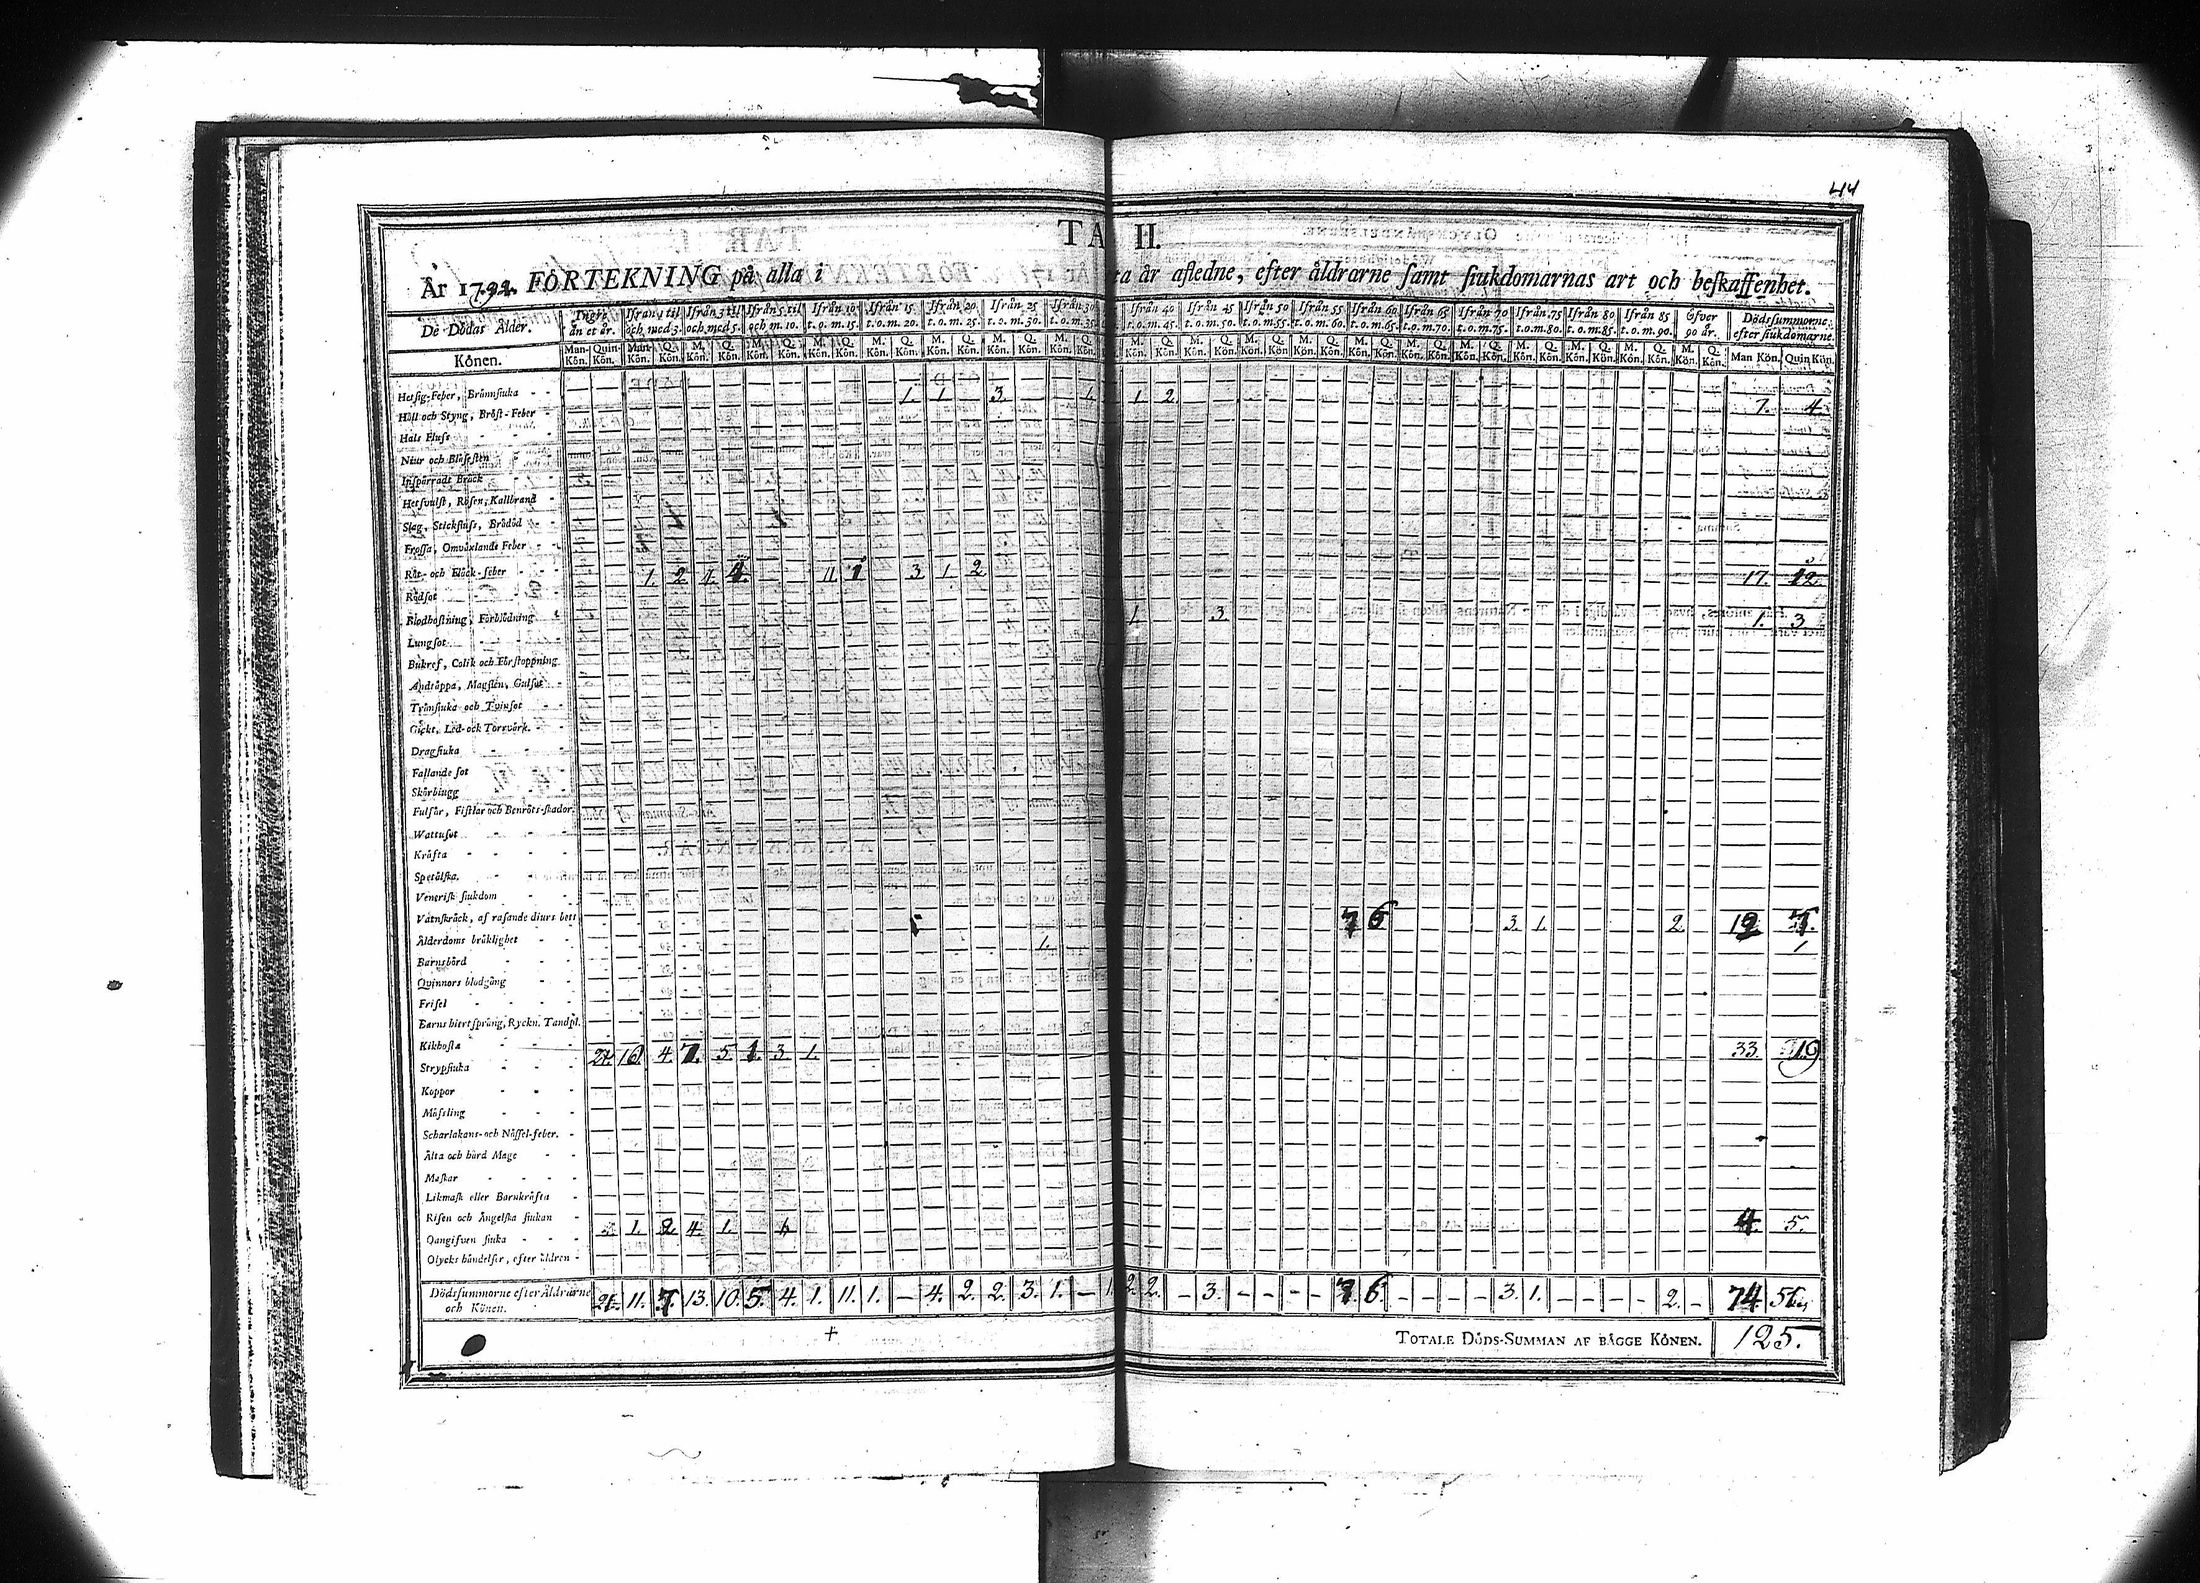 44
TA II.
År 1792. FÖRTEKNING på alla i ta år afledne, efter åldrarne samt siukdomarnas art och beskaffenhet.
De Dödas Ålder. Ingre än et år. Ifrån 1 til och med 3. Ifrån 3 til och med 5. Ifrån 5 til och m. 10. Ifrån 10 t. o. m. 15. Ifrån 15 t. o. m. 20. Ifrån 20 t. o. m. 25. Ifrån 25 t. o. m. 30. Ifrån 30 t. o. m. 35. Ifrån 40 t. o. m. 45. Ifrån 45 t. o. m. 50. Ifrån 50 t. o. m. 55. Ifrån 55 t. o. m. 60. Ifrån 60 t. o. m. 65. Ifrån 65 t. o. m. 70. Ifrån 70 t. o. m. 75. Ifrån 75 t. o. m. 80. Ifrån 80 t. o. m. 85. Ifrån 85 t. o. m. 90. Öfver 90 år. Dödssummorne efter siukdomarne.
Könen. Man-Kön. Quin-Kön. Man-Kön. Q. Kön. M. Kön. Q. Kön. M. Kön. Q. Kön. M. Kön. Q. Kön. M. Kön. Q. Kön. M. Kön. Q. Kön. M. Kön. Q. Kön. M. Kön. Q. Kön. M. Kön. Q. Kön. M. Kön. Q. Kön. M. Kön. Q. Kön. M. Kön. Q. Kön. M. Kön. Q. Kön. M. Kön. Q. Kön. M. Kön. Q. Kön. M. Kön. Q. Kön. M. Kön. Q. Kön. M. Kön. Q. Kön. M. Kön. Q. Kön. Man Kön. Quin Kön.
Hetsig-Feber, Brännsiuka 1. 1. 3. 1. 1. 2. 7. 4.
Håll och Styng, Bröst-Feber
Hals Fluss
Niur och Blåsesten
Inspärradt Bråck
Hetsvulst, Rosen, Kallbrand
Slag, Stickfluss, Brådöd
Frossa, Omväxlande Feber
Röt- och Fläck-feber 1. 2. 4. 11. 1 3 1. 2. 17. 12
Rödsot
Blodhostning, Förblödning 1. 3. 1. 3
Lungsot
Bukref, Colik och Förstoppning
Andtäppa, Magsten, Gulsot
Trånsiuka och Tvinsot
Gickt, Led- ock Torrvärk.
Dragsiuka
Fallande sot
Skörbiugg
Fulsår, Fistlar och Benröts-skador
Wattusot
Kräfta
Spetälska.
Venerisk siukdom
Vatnskräck, af rasande diurs bett 7 6 3. 1. 2. 12 7.
Ålderdoms bräklighet 1. 1
Barnsbörd
Quinnors blodgång
Frisel
Barns hiertsprång, Ryckn. Tandpl.
Kikhosta 4. 5. 1. 3. 1. 33. 19
Strypsiuka
Koppor
Mässling
Scharlakans- och Nässel-feber.
Älta och hård Mage
Maskar
Likmask eller Barnkräfta
Risen och Ängelska siukan 1. 2 4. 1. 4. 5.
Oangifven siuka
Olycks händelser, efter åldren
Dödssummorne efter Åldrarne 21. 11. 7. 13. 10. 5. 4. 1. 11. 1. – 4. 2. 2. 3. 1. – 1. 2. 2. – 3. – – – – 7. 6. – – – – 3. 1. – – – – 2. – 74. 51.
och Könen.
TOTALE DÖDS-SUMMAN AF BÄGGE KÖNEN. 125.